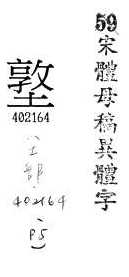 59宋體母稿異體字
墪
402164
(土部)
402164
P5)